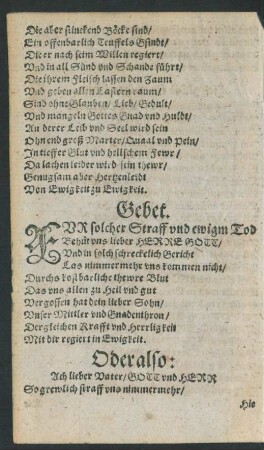 Die aber stinckend Böcke sind/
Ein offenbarlich Teuffels Gsindt/
Die er nach seim Willen regiert/
Vnd in all Sünd vnd Schande führt/
Die ihrem Fleisch lassen den Zaum
Vnd geben allen Lastern raum/
Sind ohne Glauben/ Lieb/ Gedult/
Vnd mangeln Gottes Gnad vnd Huldt/
An derer Leib vnd Seel wird sein
Ohn end groß Marter/ Quaal vnd Pein/
In tieffer Glut vnd hellschem Fewr/
Da lachen leider wird sein thewr/
Genugsam aber Hertzenleidt
Von Ewigkeit zu Ewigkeit.
Gebet.
FVR solcher Straff vnd ewigm Tod
Behüt vns lieber HERRE GOTT/
Vnd in solch schrecklich Gericht
Las nimmermehr vns kommen nicht/
Durchs kostbarlicht thewre Blut
Das vns allen zu Heil vnd gut
Vergossen hat dein lieber Sohn/
Vnser Mittler vnd Gnadenthron/
Dergleichen Krafft vnd Herrligkeit
Mit dir regiert in Ewigkeit.
Oder also:
Ach lieber Vater/ GOTT vnd HERR
So grewlich straff vns nimmermehr/
Hie